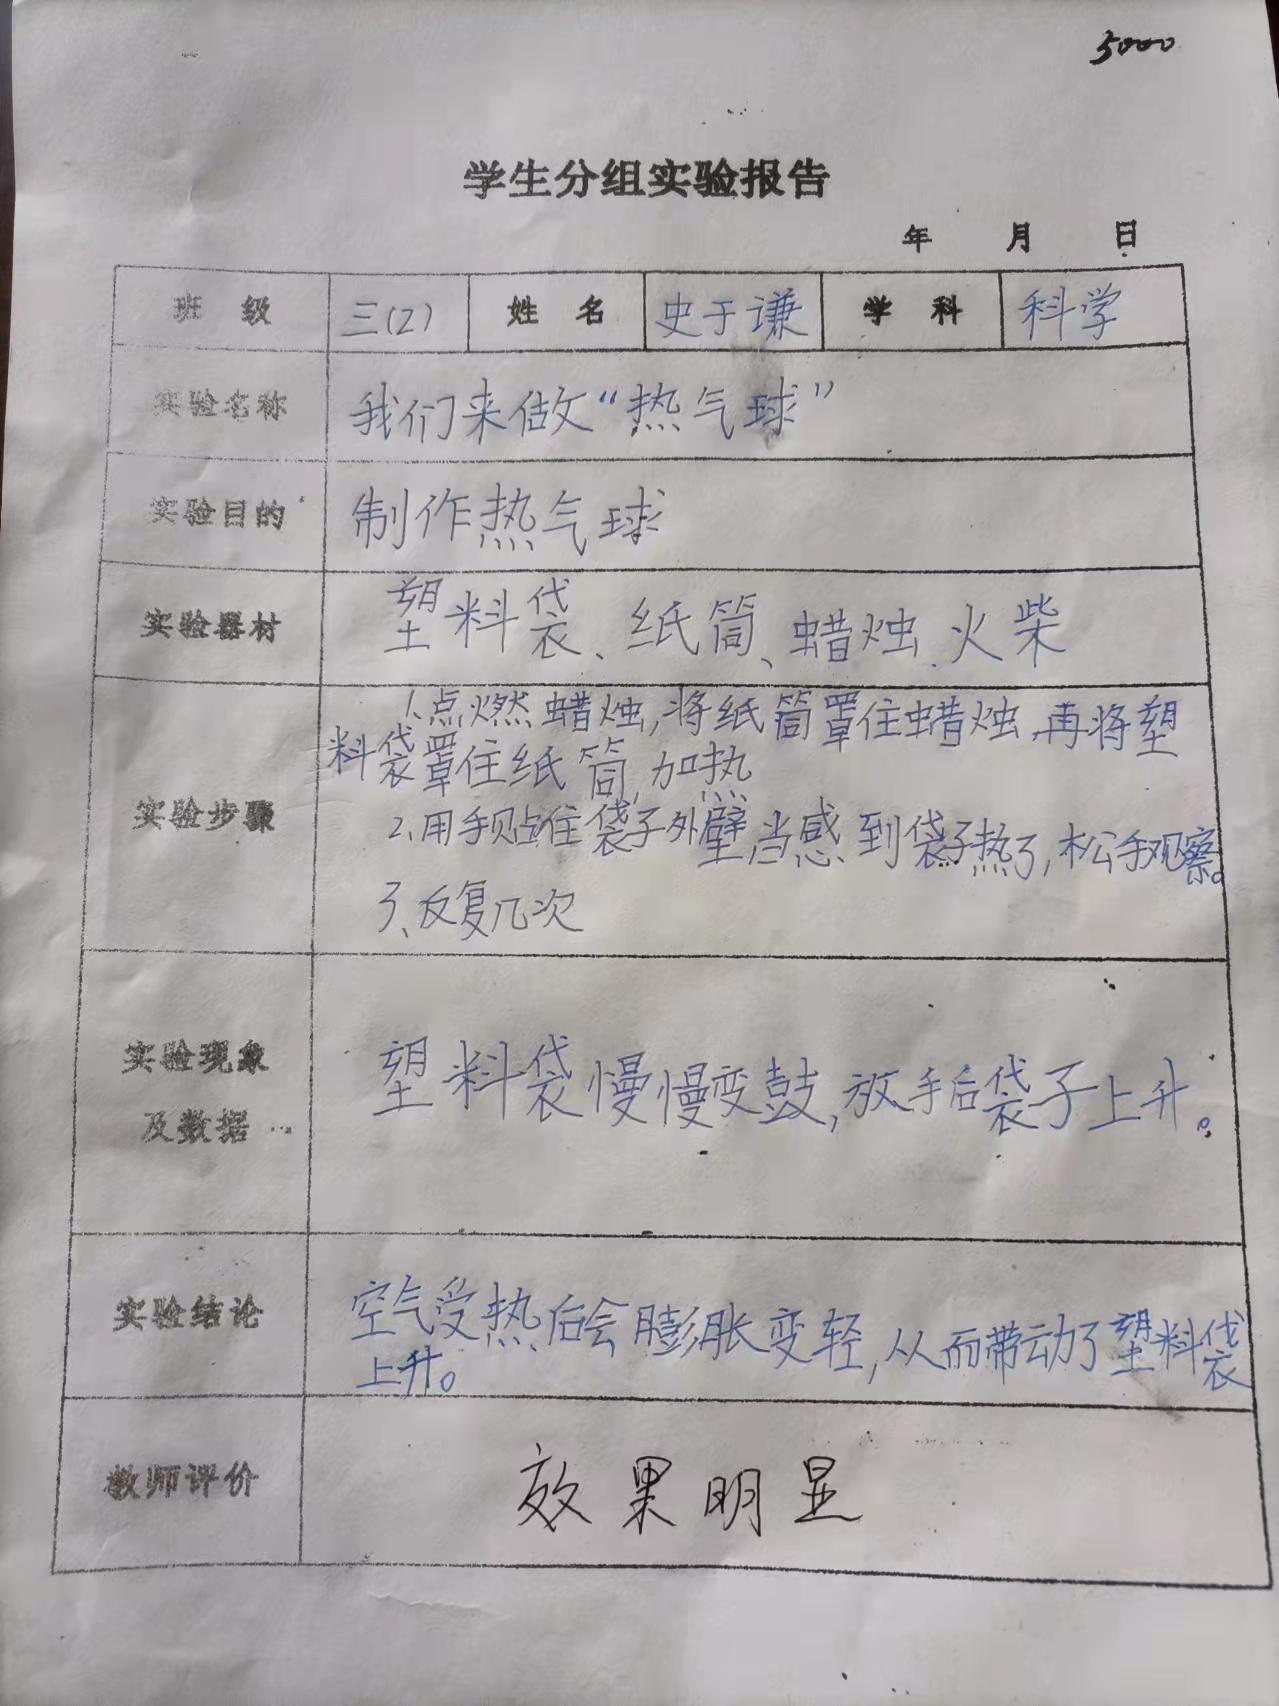 5000
学生分组实验报告
年 月 日
班 级 三(2) 姓 名 史于谦 学 科 科学
实验名称 我们来做“热气球”
实验目的 制作热气球
实验器材 塑料袋、纸筒、蜡烛、火柴
1、点燃蜡烛,将纸筒罩住蜡烛,再将塑
料袋罩住纸筒,加热
实验步骤 2、用手贴住袋子外壁,当感到袋子热了,松手观察。
3、反复几次
实验现象 塑料袋慢慢变鼓,放手后袋子上升。
及数据
实验结论 空气受热后会膨胀变轻,从而带动了塑料袋
上升。
教师评价 效果明显